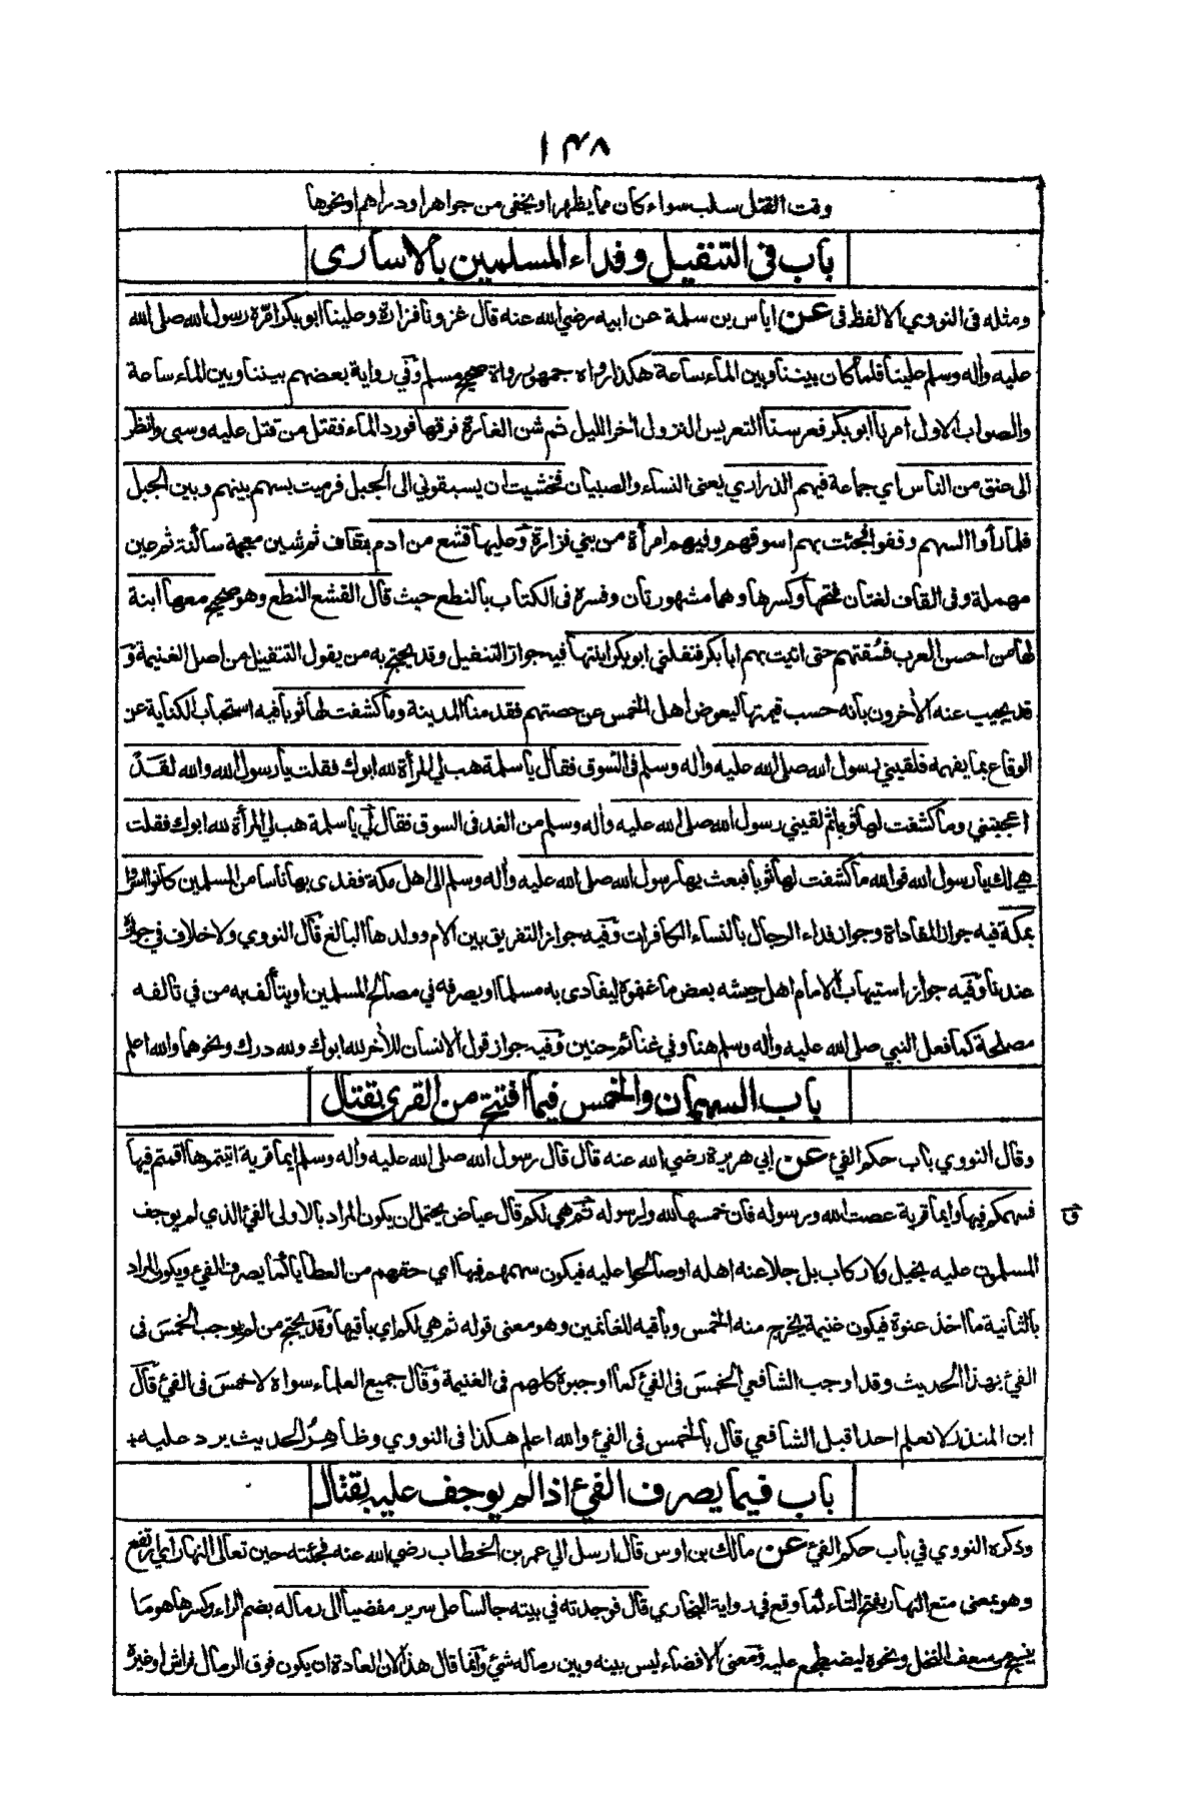 ١٤٨
وقت القتل سلب سواء كان مما يظهر او يخفى من جواهر او دراهم او نحوها
باب فى التنفيل وفداء المسلمين بالاسارى
ومثله فى النووي الا لفظ فى عن اياس بن سلمة عن ابيه رضي الله عنه قال غزونا فزارة وعلينا ابو بكر امّره رسول الله صلى الله
عليه وأله وسلم علينا فلما كان بيننا وبين الماء ساعة هكذا رواه جمهور رواة صحيح مسلم وفي رواية بعضهم بيننا وبين الماء ساعة
والصواب الاول امرنا ابو بكر فعرسنا التعريس النزول أخر الليل ثم شن الغارة فرقها فورد الماء فقتل من قتل عليه وسبى وانظر
الى عنق من الناس اي جماعة فيهم الذراري يعنى النساء والصبيان فخشيت ان يسبقوني الى الجبل فرميت بسهم بينهم وبين الجبل
فلما رأوا السهم وقفوا فجئت بهم اسوقهم وفيهم امرأة من بني فزارة وعليها قشع من ادم بقاف ثم شين معجمة ساكنة ثم عين
مهملة وفى القاف لغتان فتحها وكسرها وهما مشهورتان وفسره فى الكتاب بالنطع حيث قال القشع النطع وهو صحيح معها ابنة
لها من احسن العرب فسُقتهم حتى اتيت بهم ابا بكر فنفلني ابو بكر ابنتها فيه جواز التنفيل وقد يحتج به من يقول التنفيل من اصل الغنيمة و
قد يجيب عنه الأخرون بانه حسب قيمتها ليعوض اهل الخمس عن حصتهم فقدمنا المدينة وما كشفت لها ثوبا فيه استحباب الكناية عن
الوقاع بما يفهمه فلقيني رسول الله صلى الله عليه وأله وسلم فى السوق فقال يا سلمة هب لي المرأة لله ابوك فقلت يا رسول الله والله لقد
اعجبتني وما كشفت لها ثوبا ثم لقيني رسول الله صلى الله عليه وأله وسلم من الغد فى السوق فقال لي يا سلمة هب لي المرأة لله ابوك فقلت
هي لك يا رسول الله فوالله ما كشفت لها ثوبا فبعث بها رسول الله صلى الله عليه وأله وسلم الى اهل مكة ففدى بها ناسا من المسلمين كانوا اسروا
بمكة فيه جواز المفاداة وجواز فداء الرجال بالنساء الكافرات وفيه جواز التفريق بين الام وولدها البالغ قال النووي ولا خلاف في جوازه
عندنا وفيه جواز استيهاب الامام اهل جيشه بعض ما غنموه ليفادى به مسلما او يصرفه في مصالح المسلمين او يتألف به من في تالفه
مصلحة كما فعل النبي صلى الله عليه وأله وسلم هنا وفي غنائم حنين وفيه جواز قول الانسان للأخر لله ابوك ولله درك ونحوهما والله اعلم
باب السهمان والخمس فيما افتتح من القرى بقتال
وقال النووي باب حكم الفيء عن ابي هريرة رضي الله عنه قال قال رسول الله صلى الله عليه وأله وسلم ايما قرية اتيتموها اقمتم فيها
فسهمكم فيها وايما قرية عصت الله ورسوله فان خمسها لله ولرسوله ثم هي لكم قال عياض يحتمل ان يكون المراد بالاولى الفيء الذي لم يوجف
ق
المسلمون عليه بخيل ولا ركاب بل جلا عنه اهله او صالحوا عليه فيكون سهمهم فيها اي حقهم من العطايا كما يصرف الفيء ويكون المراد
بالثانية ما اخذ عنوة فيكون غنيمة يخرج منه الخمس وباقيه للغانمين وهو معنى قوله ثم هي لكم اي باقيها وقد يحتج من لم يوجب الخمس فى
الفيء بهذا الحديث وقد اوجب الشافعي الخمس فى الفيء كما اوجبوه كلهم فى الغنيمة وقال جميع العلماء سواه لا خمس فى الفيء قال
ابن المنذر لا نعلم احدا قبل الشافعي قال بالخمس فى الفيء والله اعلم هكذا فى النووي وظاهر الحديث يرد عليه
باب فيما يصرف الفيء اذا لم يوجف عليه بقتال
وذكره النووي في باب حكم الفيء عن مالك بن اوس قال ارسل الي عمر بن الخطاب رضي الله عنه فجئته حين تعالى النهار اي ارتفع
وهو بمعنى متع النهار بفتح التاء كما وقع في رواية البخاري قال فوجدته في بيته جالسا على سرير مفضيا الى رماله بضم الراء وكسرها هو ما
ينسج من سعف النخل ونحوه ليضطجع عليه ومعنى الافضاء ليس بينه وبين رماله شيء وانما قال هذا لان العادة ان يكون فوق الرمال فراش او غيره